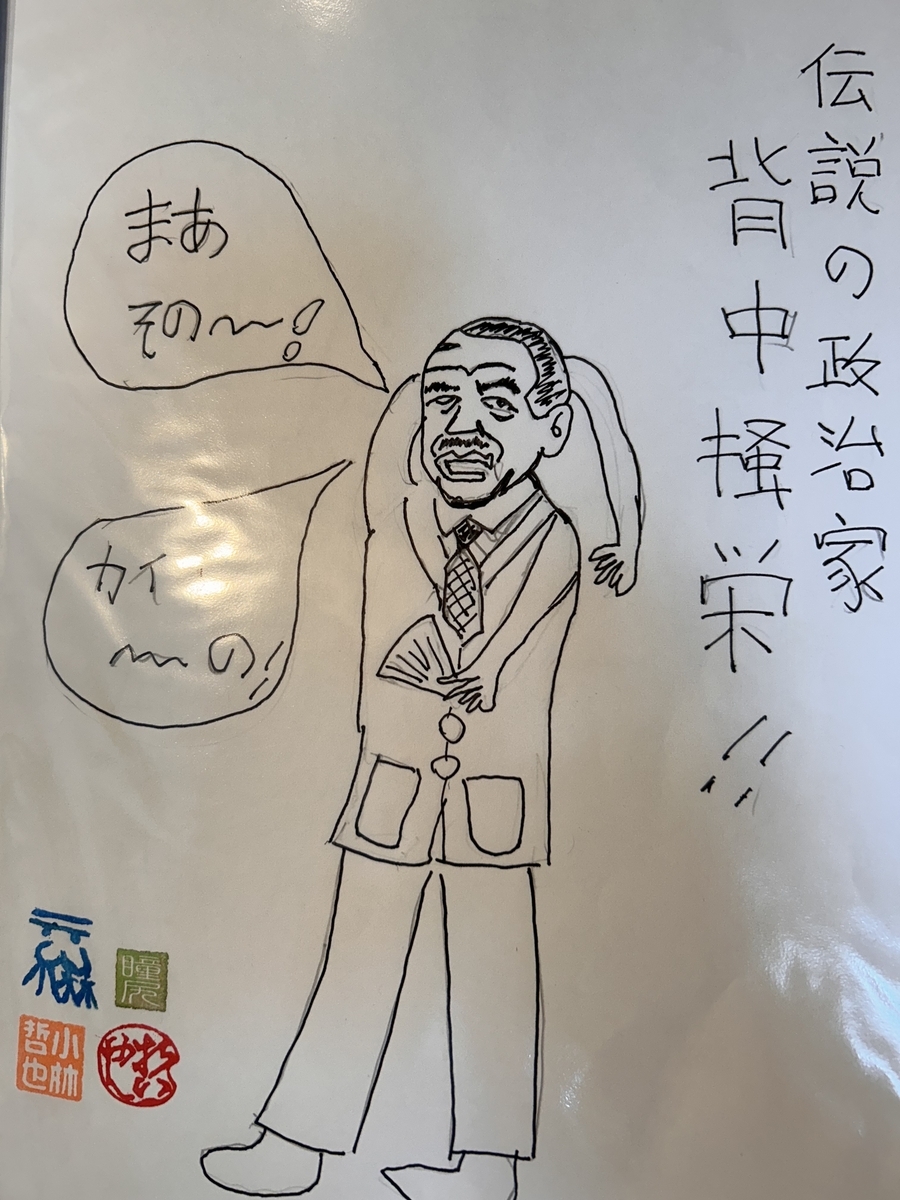 伝説の政治家
背中掻栄!!
まあ
その〜!
カイ
〜の!!
瞳尻
小林
哲也